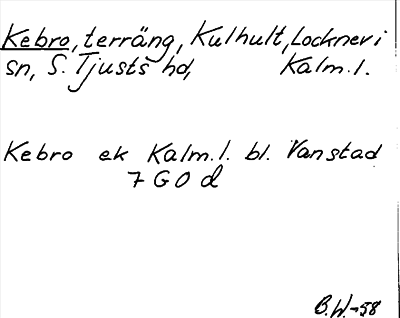 Kebro, terräng, Kulhult, Locknevi
sn, S. Tjusts hd, Kalm.l.
Kebro ek Kalm.l. bl. Vanstad
7 G O d
B.W.-58